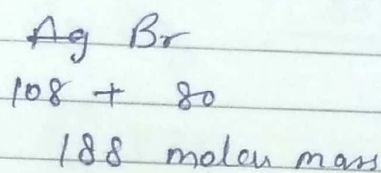 Ag Br
108 + 80
188 molar mass